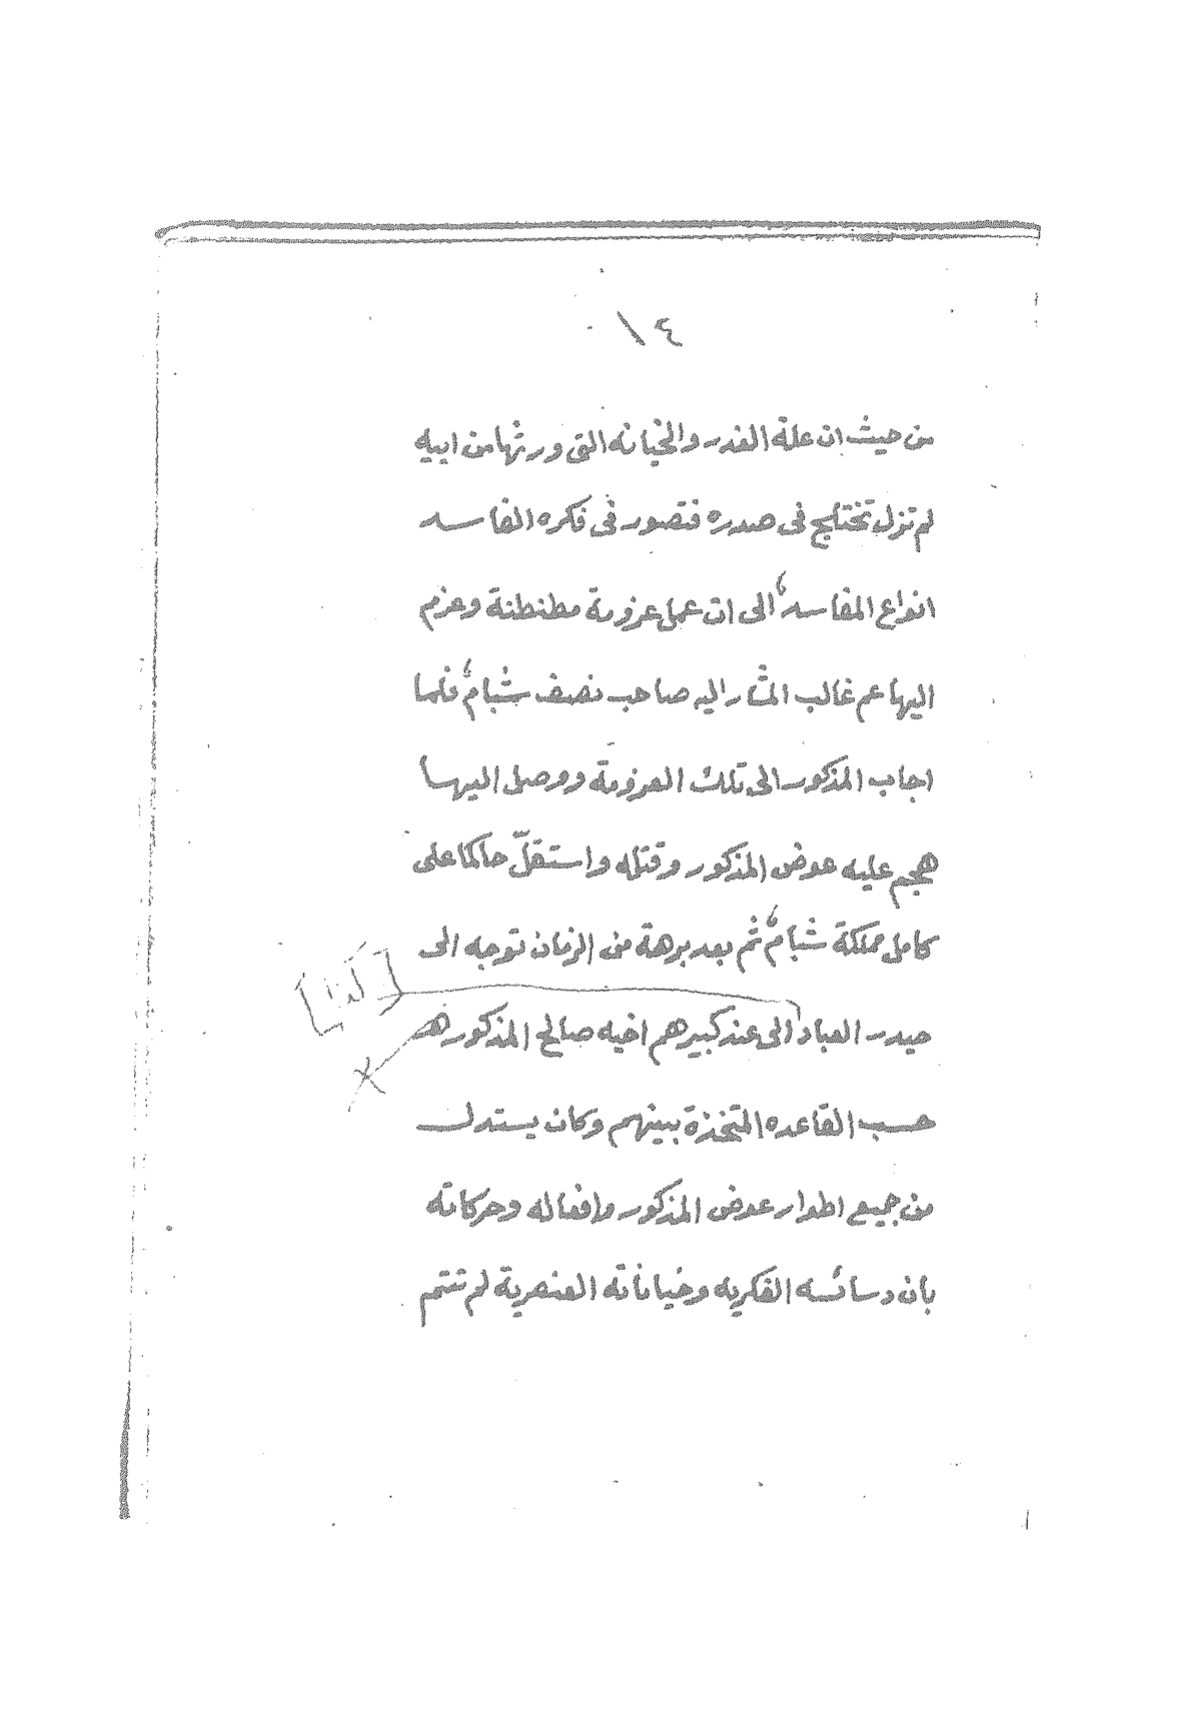 ١٤
من حيث ان علة الغدر والخيانه التى ورثها من ابيه
لم تزل تختلج فى صدره فتصور فى فكره الفاسد
انواع المفاسد، الى ان عمل عزومة مطنطنة وعزم
اليها عم غالب المشار اليه صاحب نصف شبام، فلما
اجاب المذكور الى تلك العزومة ووصل اليها
هجم عليه عوض المذكور وقتله واستقلّ حاكما على
كامل مملكة شبام، ثم بعد برهة من الزمان توجه الى
حيدر اباد الى عند كبيرهم اخيه صالح المذكور هـ
[كذا]
حسب القاعده المتخذة بينهم وكان يستدل
من جميع اطوار عوض المذكور وافعاله وحركاته
بان دسائسه الفكريه وخياناته العنصرية لم تتم